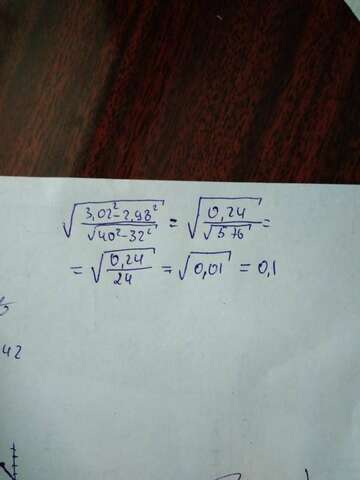 √(3,02² - 2,98² / √(40² - 32²)) = √(0,24 / √576) =
= √(0,24 / 24) = √0,01 = 0,1
42